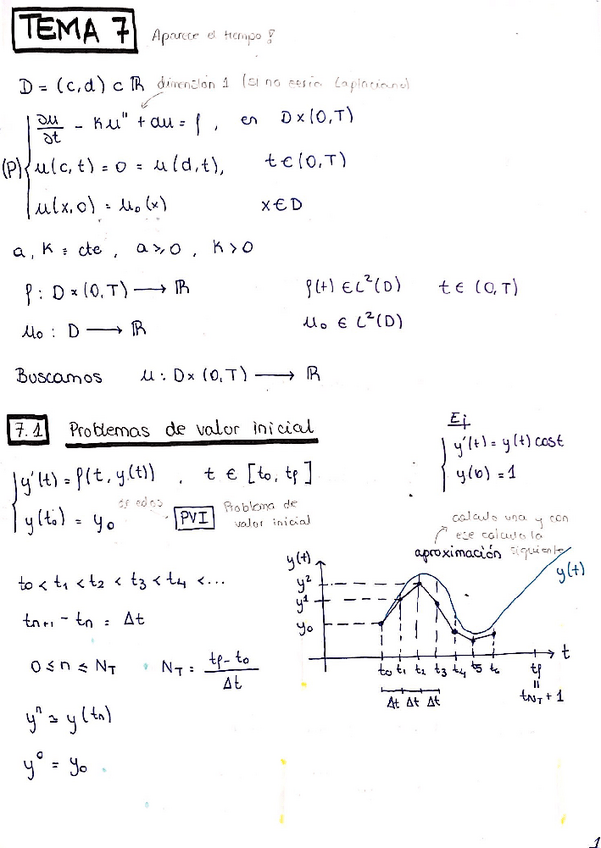 TEMA 7 Aparece el tiempo!
D = (c,d) ⊂ ℝ dimensión 1 (si no sería laplaciano)
(P) { ∂u/∂t - Ku'' + au = f, en D×(0,T)
u(c,t) = 0 = u(d,t), t ∈ (0,T)
u(x,0) = u₀(x) x ∈ D
a, K = cte, a ≥ 0, K > 0
f : D×(0,T) ⟶ ℝ f(t) ∈ L²(D) t ∈ (0,T)
u₀ : D ⟶ ℝ u₀ ∈ L²(D)
Buscamos u : D×(0,T) ⟶ ℝ
7.1 Problemas de valor inicial
Ej
y'(t) = y(t) cos t
y(0) = 1
y'(t) = f(t, y(t)), t ∈ [t₀, tf]
y(t₀) = y₀ de edos PVI Problema de valor inicial
calculo una y con
ese calculo la
aproximación siguiente
t₀ < t₁ < t₂ < t₃ < t₄ < ...
tₙ₊₁ - tₙ = Δt
0 ≤ n ≤ N_T N_T = (tf - t₀)/Δt
yⁿ ≃ y(tₙ)
y⁰ = y₀
y(t)
y²
y¹
y₀
y(t)
t₀ t₁ t₂ t₃ t₄ t₅ t₆ tf t
Δt Δt Δt
=
t_{N_T}+1
1